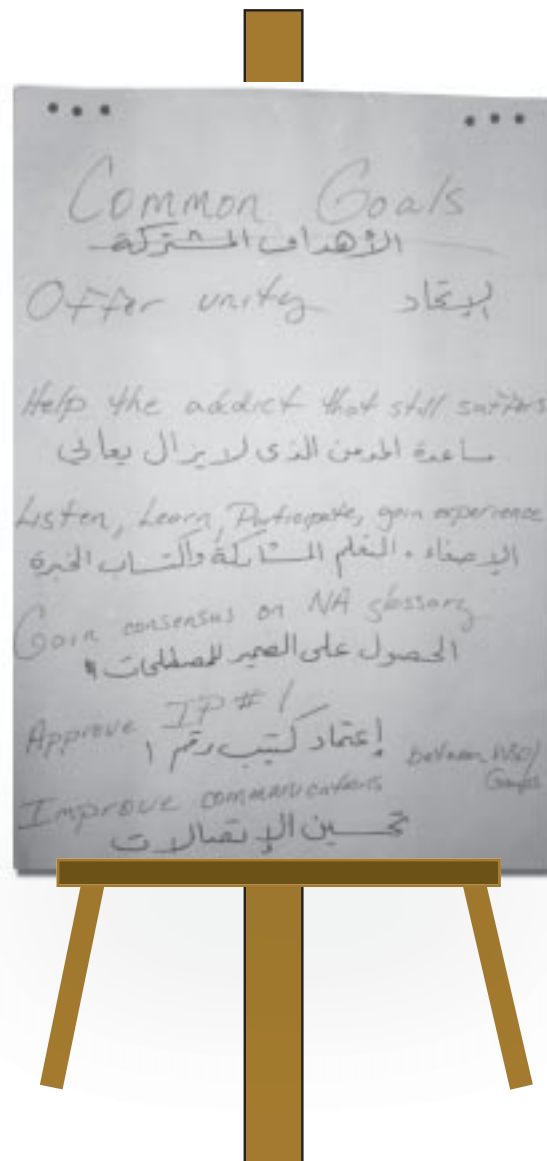 Common Goals
الأهداف المشتركة
Offer unity الإتحاد
Help the addict that still suffers
مساعدة المدمن الذى لا يزال يعاني
Listen, Learn, Participate, gain experience
الإصغاء . التعلم المشاركة واكتساب الخبرة
Gain consensus on NA glossary
الحصول على للمصطلحات
Approve IP # 1
إعتماد كتيب رقم ١
Improve communications between WSO/
Groups
تحسين الإتصالات